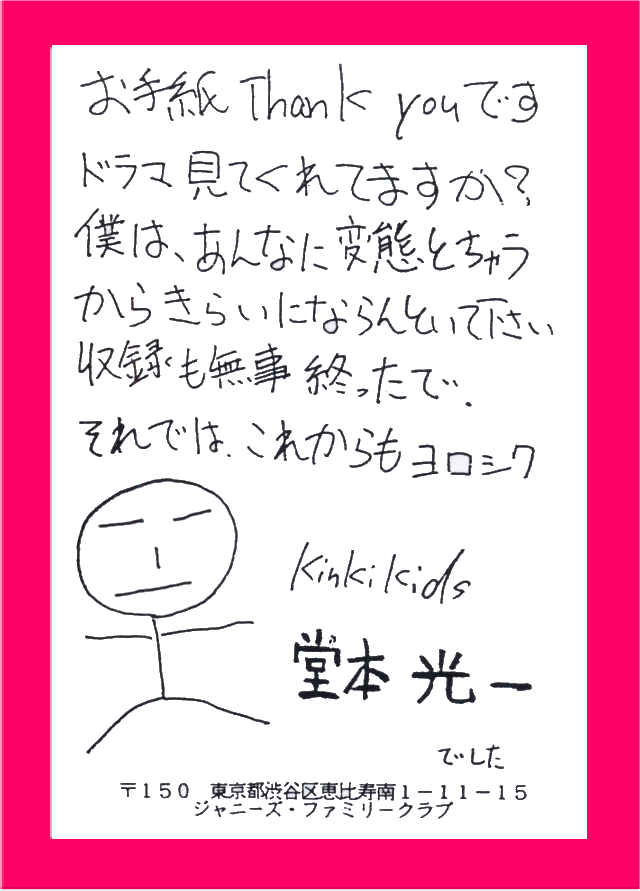 お手紙 Thank youです
ドラマ見てくれてますか?
僕は、あんなに変態とちゃう
からきらいにならんといて下さい
収録も無事終ったで.
それでは、これからもヨロシク
Kinki kids
堂本光一
でした
〒150 東京都渋谷区恵比寿南1-11-15
ジャニーズ・ファミリークラブ